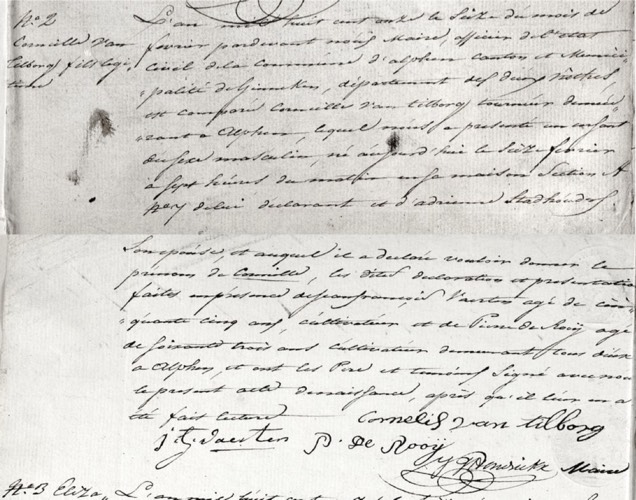 N.o 2
Corneille Van
Tilborg fils legi-
time
L'an mil huit cent onze le Seize du mois de
fevrier pardevant nous Maire, officier de l'etat
civil de la Commune d'alphen canton et Munici-
"palité de Ginneken, département des deux Nèthes
est comparu Corneille Van tilborg tournier demeu-
"rant a Alphen, lequel nous a presenté un enfant
du sexe masculin, né aujourd'hui le Seize fevrier
à Sept heures du matin en sa maison Section A
N.o 7 de lui declarant et d'adrienne Stadhouders
Son epouse, et auquel il a declaré vouloir donner le
prenom de Corneille, les dites declaration et presentation
faites en presence de Jean françois Vaerten agé de cin-
"quante cinq ans, cultivateur et de Pierre de Rooij agé
de Soixante trois ans cultivateur demeurant tous deux
a Alphen, et ont les Pere et temoins Signé avec nous
le present acte de naissance, après qu'il leur en a
été fait lecture
Cornelis van tilborg
j f Vaerten P. De Rooij
Hendrickx Maire
N.o 3 Eliza- L'an mil huit cent